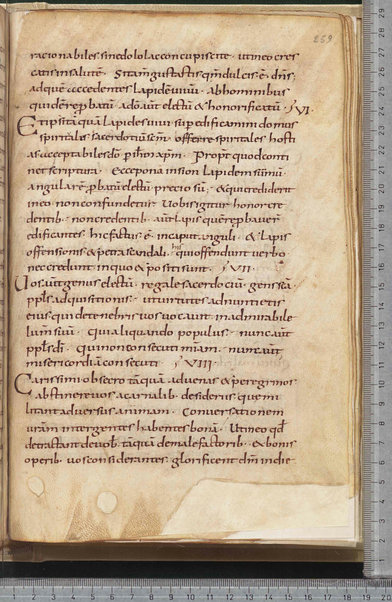 259
racionabiles sine dolo lac concupiscite · ut in eo cres
catis in salutē · Si tam̄ gustastis qm̄ dulcis ē · dn̄s ·
ad quē accedentes lapidē uiuū · ab hominibus
quidē rep̄batū · a dō aut̄ electū & honorificatū · VI ·
Et ipsi tāquā lapides uiui sup̄edificamini domus
spiritalis sacerdotiū sc̄m · offerre spiritales hosti
as acceptabiles dō p ih̄m xp̄m · Propt̄ quod conti
net scriptura · Ecce pono in sion lapidem sūmū
angularē p̄batū electū preciosū ; & qui crediderit
in eo non confundetur Uobis igitur honor cre
dentib · non credentib · aut̄ lapis quē rep̄bauer̄
edificantes hic factus ē · in caput anguli · & lapis
offensionis & petra scandali · his qui offendunt uerbo
nec credunt in quo & positi sunt · VII ·
Uos aut̄ genus electū · regale sacerdociū · gens sc̄a
ppl̄s adquisitionis · ut uirtutes adnuntietis
eius qui de tenebris uos uocauit in admirabile
lum̄ suū · Qui aliquando populus · nunc aut̄
ppl̄s dī · qui non consecuti mīam · nunc aut̄
misericordiā consecuti · VIII ·
Carissimi obsecro tāquā aduenas & peregrinos
abstinere uos a carnalib · desideriis que mi
litant aduersus animam · Conuersationem
urām inter gentes habentes bonā · Ut in eo qd̄
detractant de uob · tāquā de malefactorib · ex bonis
operib · uos considerantes · glorificent dm̄ in die